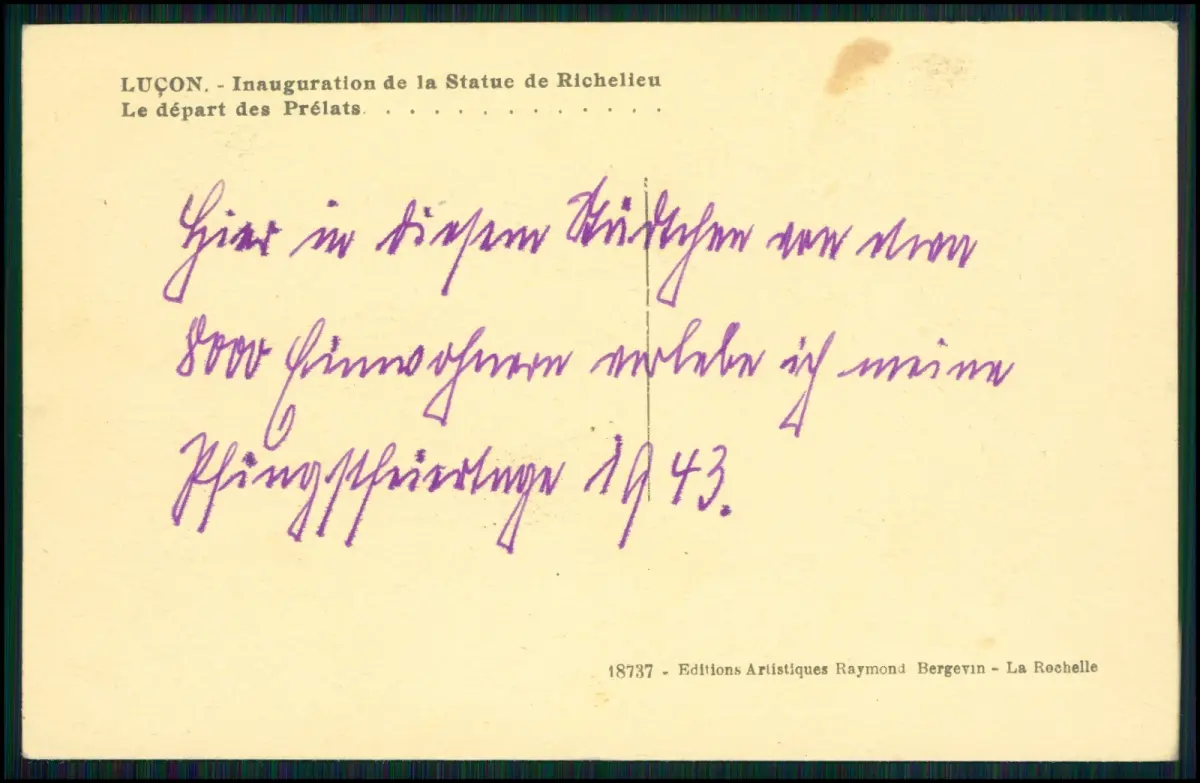 LUÇON. - Inauguration de la Statue de Richelieu
Le départ des Prélats. . . . . . . . . . . . .
Hier in diesem Städtchen von etwa
8000 Einwohnern verlebe ich meine
Pfingstfeiertage 1943.
18737 - Editions Artistiques Raymond Bergevin - La Rochelle